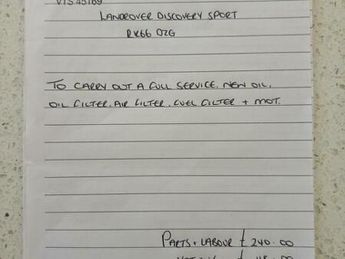 VTS 45169
LANDROVER DISCOVERY SPORT
RK66 OZG
TO CARRY OUT A FULL SERVICE. NEW OIL,
OIL FILTER, AIR FILTER, FUEL FILTER + MOT.
PARTS + LABOUR £ 240.00